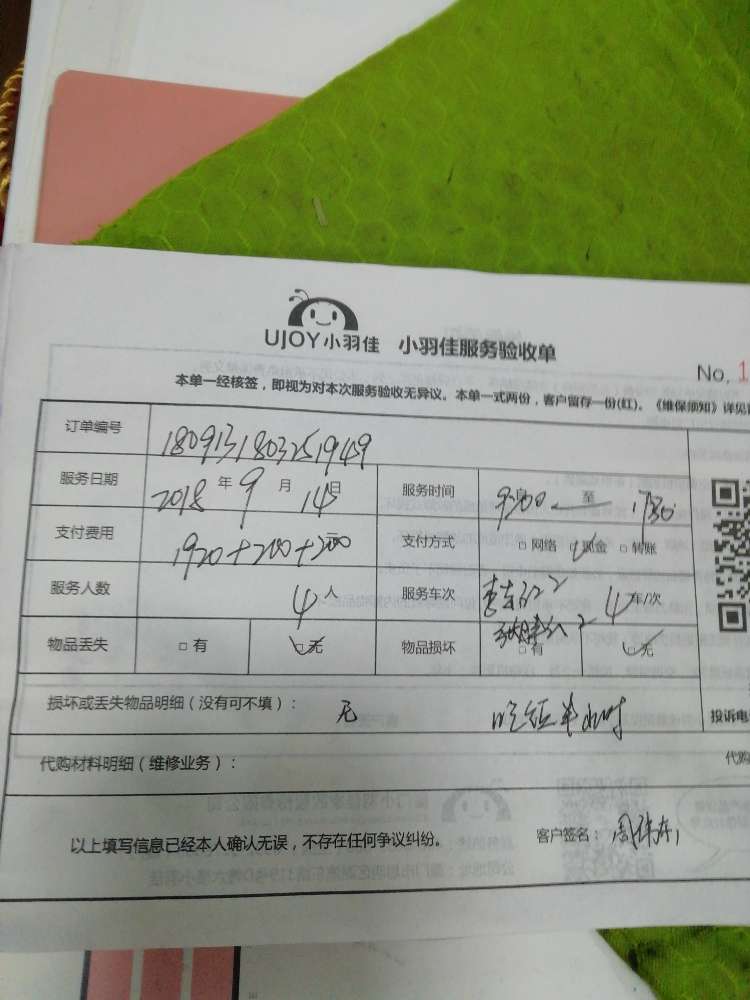 UJOY小羽佳 小羽佳服务验收单
No. 1
本单一经核签，即视为对本次服务验收无异议。本单一式两份，客户留存一份(红)。《维保须知》详见
订单编号 1809131803251949
服务日期 2018年9月14日 服务时间 9:00 至 1730
支付费用 1920+200+200 支付方式 □网络 ☑现金 □转账
服务人数 4人 服务车次 2 4车/次
2
物品丢失 □有 ☑无 物品损坏 □有 ☑无
损坏或丢失物品明细（没有可不填）： 无 半小时
投诉电
代购材料明细（维修业务）：
代购
以上填写信息已经本人确认无误，不存在任何争议纠纷。 客户签名：周